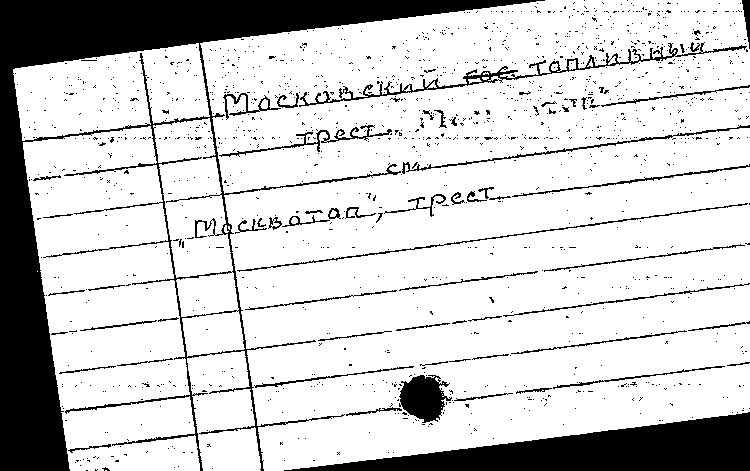 Московский гос топливный
трест
см.
"Москвотоп", трест